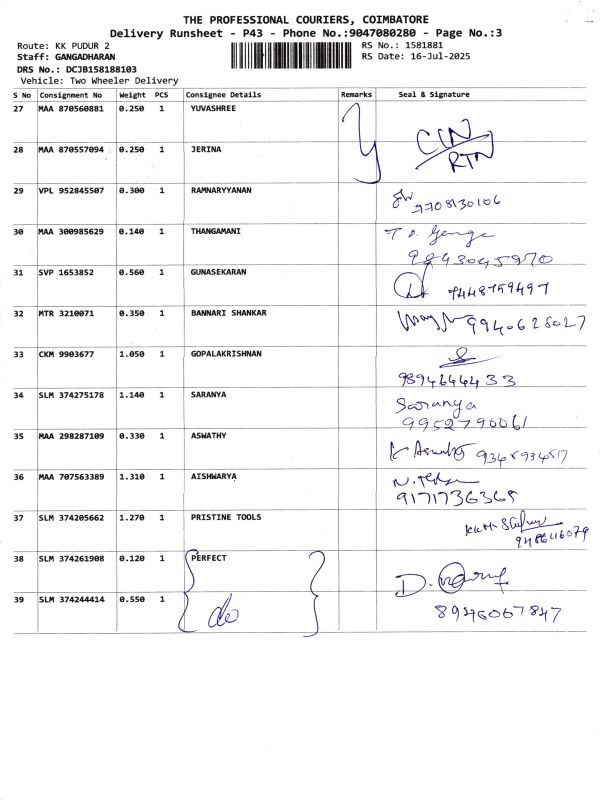 THE PROFESSIONAL COURIERS, COIMBATORE
Delivery Runsheet - P43 - Phone No.:9047080280 - Page No.:3
Route: KK PUDUR 2 RS No.: 1581881
Staff: GANGADHARAN RS Date: 16-Jul-2025
DRS No.: DCJB158188103
Vehicle: Two Wheeler Delivery
S No Consignment No Weight PCS Consignee Details Remarks Seal & Signature
27 MAA 870560881 0.250 1 YUVASHREE
CIN
28 MAA 870557094 0.250 1 JERINA
RTN
29 VPL 952845507 0.300 1 RAMNARYYANAN
9708130106
30 MAA 300985629 0.140 1 THANGAMANI
T. S. George
9843045970
31 SVP 1653852 0.560 1 GUNASEKARAN
9448759497
32 MTR 3210071 0.350 1 BANNARI SHANKAR
9940625027
33 CKM 9903677 1.050 1 GOPALAKRISHNAN
9894644433
34 SLM 374275178 1.140 1 SARANYA
Saranya
9952790061
35 MAA 298287109 0.330 1 ASWATHY
36 MAA 707563389 1.310 1 AISHWARYA
9171736365
37 SLM 374205662 1.270 1 PRISTINE TOOLS
9486116079
38 SLM 374261908 0.120 1 PERFECT
D.
39 SLM 374244414 0.550 1 do
8946067847